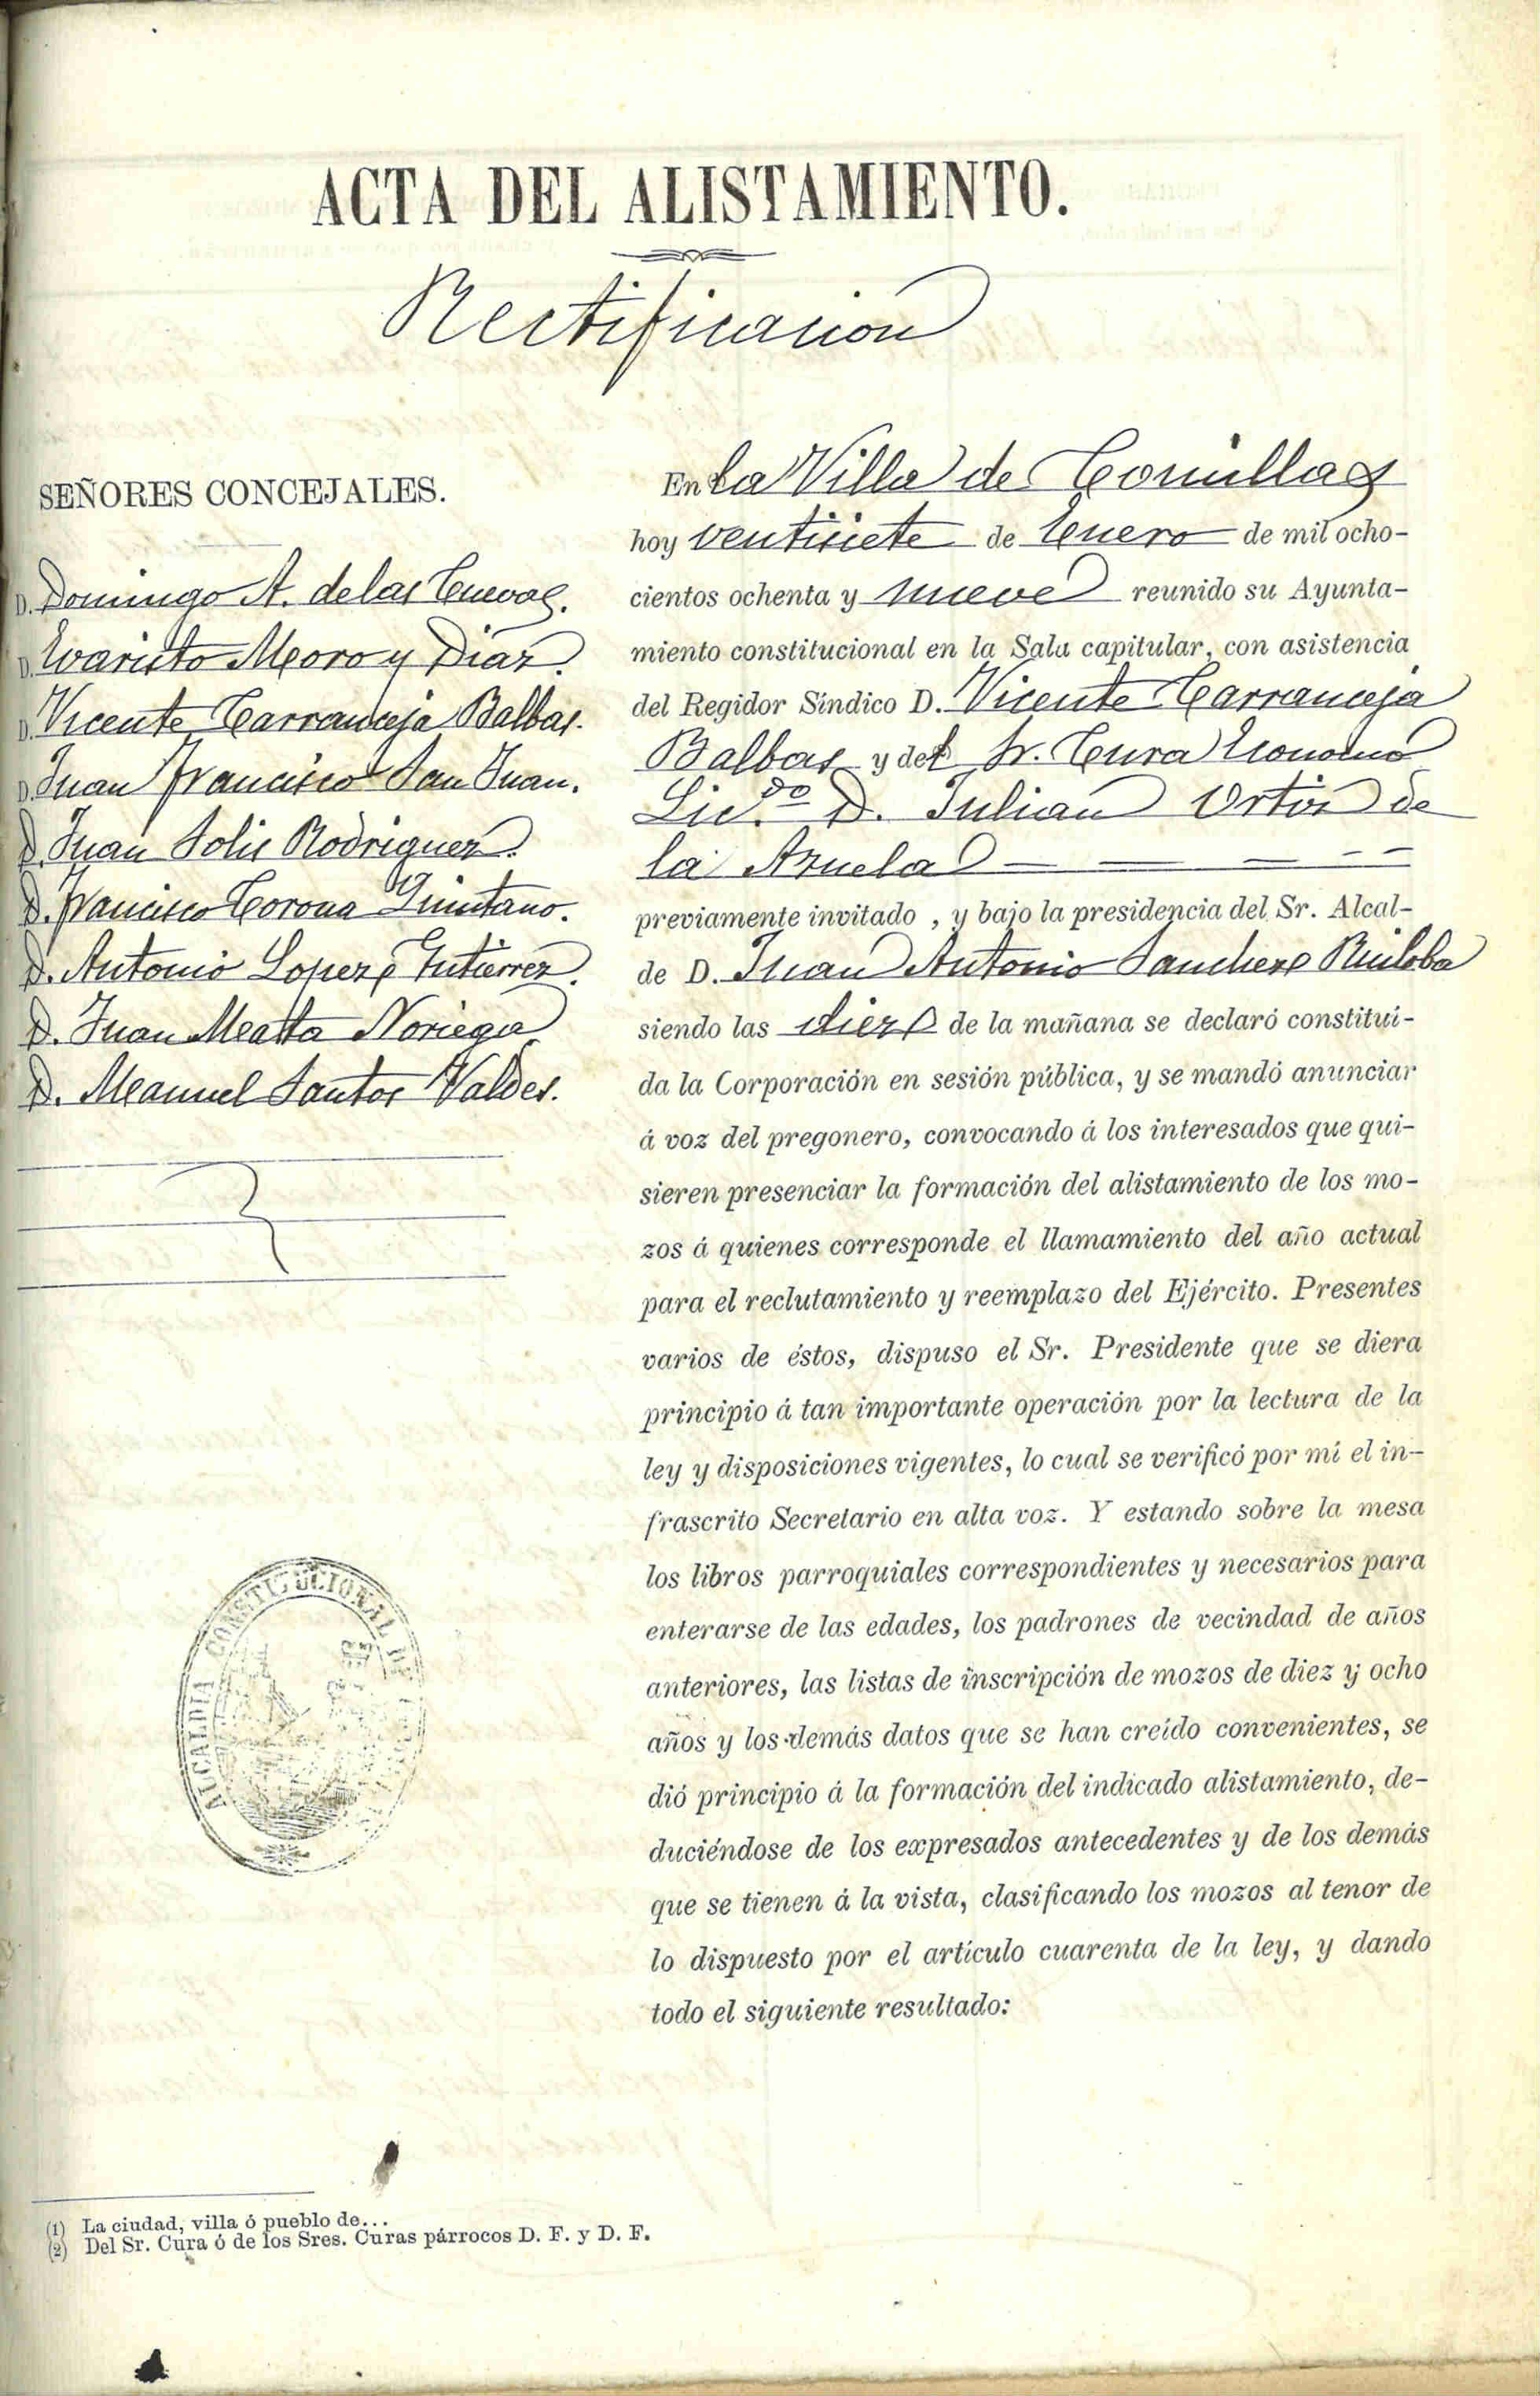 ACTA DEL ALISTAMIENTO.
Rectificacion
SEÑORES CONCEJALES.
D. Domingo A. de las Cuevas.
D. Evaristo Moro y Diaz.
D. Vicente Carranceja Balbas.
D. Juan Francisco San Juan.
D. Juan Solis Rodriguez.
D. Francisco Corona Quintano.
D. Antonio Lopez Gutierrez.
D. Juan Matta Noriega
D. Manuel Santos Valdes.
ALCALDIA CONSTITUCIONAL DE
En La Villa de Comillas
hoy ventisiete de Enero de mil ocho-
cientos ochenta y nueve reunido su Ayunta-
miento constitucional en la Sala capitular, con asistencia
del Regidor Síndico D. Vicente Carranceja
Balbas y del Sr. Cura Economo
Lic.do D. Julian Ortiz de
la Azuela
previamente invitado , y bajo la presidencia del Sr. Alcal-
de D. Juan Antonio Sanchez Ruiloba
siendo las diez de la mañana se declaró constitui-
da la Corporación en sesión pública, y se mandó anunciar
á voz del pregonero, convocando á los interesados que qui-
sieren presenciar la formación del alistamiento de los mo-
zos á quienes corresponde el llamamiento del año actual
para el reclutamiento y reemplazo del Ejército. Presentes
varios de éstos, dispuso el Sr. Presidente que se diera
principio á tan importante operación por la lectura de la
ley y disposiciones vigentes, lo cual se verificó por mí el in-
frascrito Secretario en alta voz. Y estando sobre la mesa
los libros parroquiales correspondientes y necesarios para
enterarse de las edades, los padrones de vecindad de años
anteriores, las listas de inscripción de mozos de diez y ocho
años y los demás datos que se han creído convenientes, se
dió principio á la formación del indicado alistamiento, de-
duciéndose de los expresados antecedentes y de los demás
que se tienen á la vista, clasificando los mozos al tenor de
lo dispuesto por el artículo cuarenta de la ley, y dando
todo el siguiente resultado:
(1) La ciudad, villa ó pueblo de...
(2) Del Sr. Cura ó de los Sres. Curas párrocos D. F. y D. F.